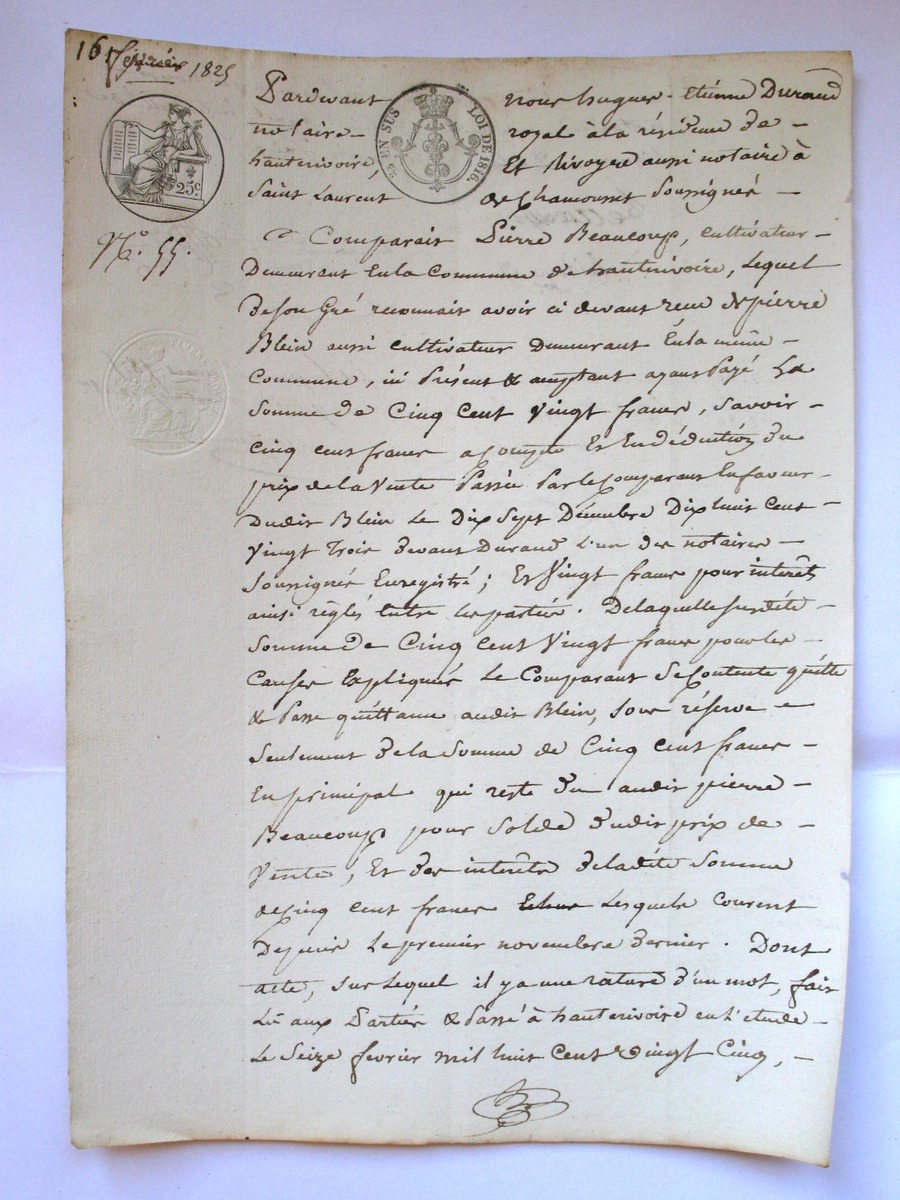 16 février 1825
25c.
EN SUS
LOI DE 1816.
N.° 55.
Pardevant nous hugues-Etiénne Durand
notaire - royal à la résidence de -
hauterivoire, Et Rivoyre aussi notaire à
Saint Laurent de Chamousset Soussignés -
Comparait Piérre Beaucoup, cultivateur -
Demeurant En la Commune de hauterivoire, Lequel
de son Gré reconnait avoir ci devant recu de pierre
Blein aussi cultivateur Demeurant En la même -
Commune, ici Présent & acceptant ayant Payé La
Somme de Cinq Cent Vingt francs, Savoir -
Cinq cent francs a compte Et En déduction du
prix de la Vente Passée Par le Comparant En faveur
dudit Blein Le Dix Sept Décembre Dix huit Cent -
Vingt Trois devant Durand L'un des notaires -
Soussignés Enregistré ; Et Vingt francs pour intérêts
ainsi réglés Entre les parties. De laquelle susdite -
Somme de Cinq Cent Vingt francs pour les -
Causes Expliquées Le Comparant Se Contente quitte
& Passe quittance audit Blein, Sous réserve -
Seulement de la Somme de Cinq cent francs -
En principal qui reste du audit pierre -
Beaucoup pour Solde dudit prix de -
Vente ; Et des intérêts de ladite Somme
de Cinq cent francs Lesquels Courent
Depuis Le premier novembre dernier. Dont
acte, sur Lequel il y a une rature d'un mot, fait
Lu aux Parties & Passé à hauterivoire en l'étude -
Le Seize fevrier mil huit Cent Vingt Cinq, -